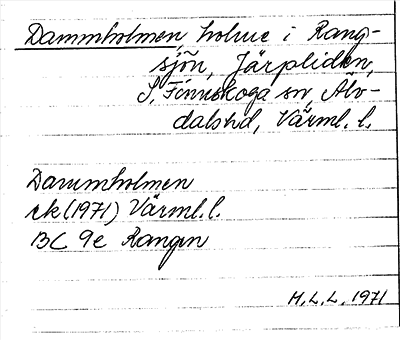 Dammholmen, holme i Rang-
sjön, Järpliden,
S. Finnskoga sn, Älv-
dals hd, Värml. l.
Dammholmen
rk (1971) Värml. l.
13C 9e Rangen
H. L. L. 1971